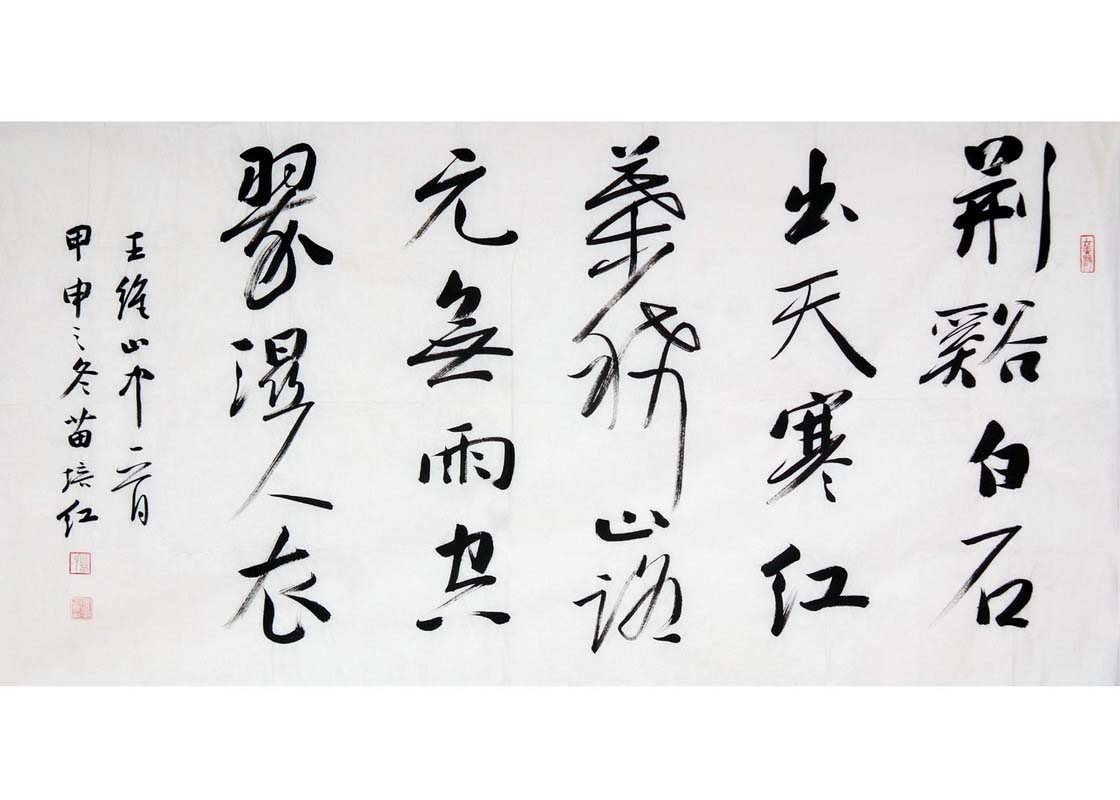 荆谿白石
出天寒红
葉稀山路
元無雨空
翠湿人衣
王维山中一首
甲申之冬苗培红